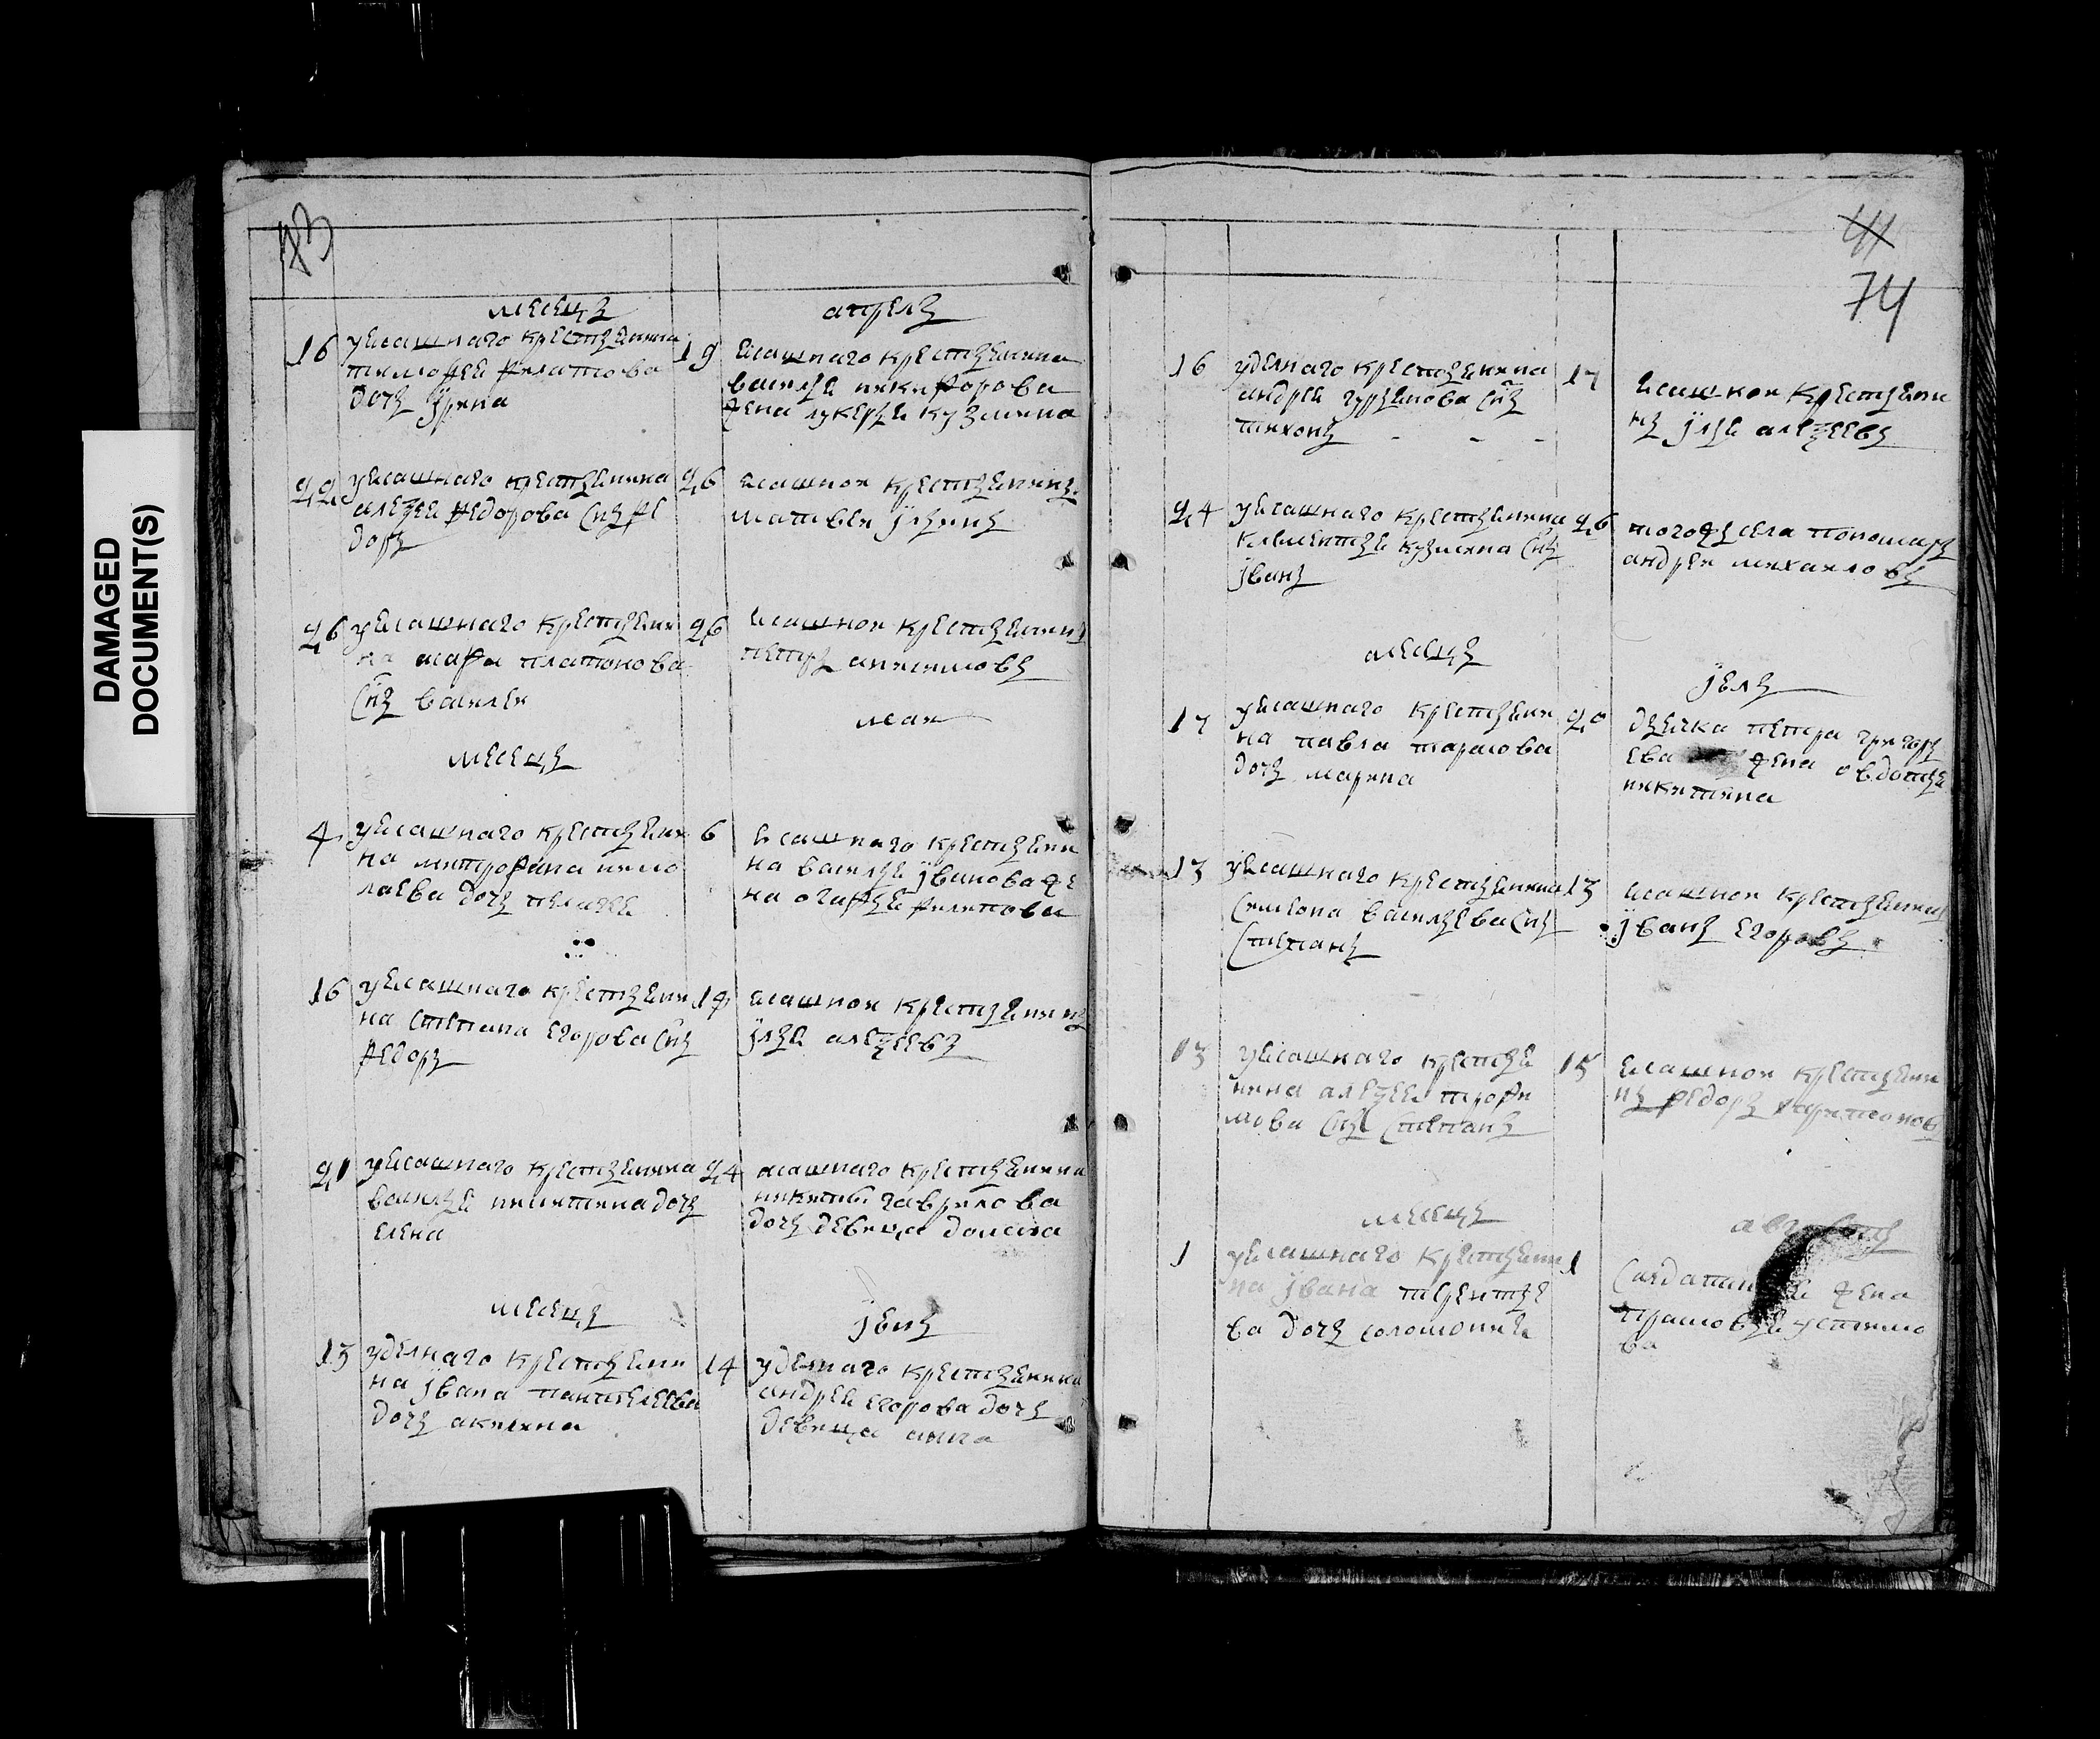 DAMAGED
DOCUMENT(S)
44
74
месецъ апрелъ
16 уясашнаго крестьянина
тимофея филатова
дочь їрина
19 ясашнаго крестьянина
василья никифорова
жена лукерья кузмина
22 уясашнаго крестьянина
алеѯея федорова сынъ фе
доръ
26 ясашнои крестьянинъ
матвеи їлинъ
26 уясашнаго крестьяни
на платонова
сынъ василеи
26 ясашнои крестьянинъ
петръ анисимовъ
месецъ маи
4 уясашнаго крестьяни
на митрофана нико
лаева дочь пелагея
6 ясашнаго крестьяни
на василья їванова же
на огафья филипова
16 уясашнаго крестьяни
на степана егорова сынъ
федоръ
ясашнои крестьянинъ
їлья алеѯеевъ
21 уясашнаго крестьянина
василья никитина дочь
елена
24 ясашнаго крестьянина
никиты гаврилова
дочь девица домна
месецъ їюнь
13 уделнаго крестьяни
на ївана пантелеева
дочь акилина
14 уделнаго крестьянина
андрея егорова дочь
девица анна
16 уделнаго крестьянина
андрея гурьянова сынъ
тихонъ - - -
17 ясашнои крестьяни
нъ їлья алеѯеевъ
24 уясашнаго крестьянина
клементья кузмина сынъ
їванъ
26 тогожъ села пономарь
андреи михаиловъ
месецъ їюль
17 уясашнаго крестьяни
на павла тарасова
дочь марина
20 дьячка петра григорь
ева жена овдотья
никитина
13 уясашнаго крестьянина
симиона васильева сынъ
степанъ
13 ясашнои крестьянинъ
їванъ егоровъ
13 уясашнаго крестья
нина алеѯея трофи
мова сынъ степанъ
15 ясашнои крестьяни
нъ федоръ
месецъ августъ
1 уясашнаго крестьяни
на ївана терентье
ва дочь соломония
1 жена
устинова